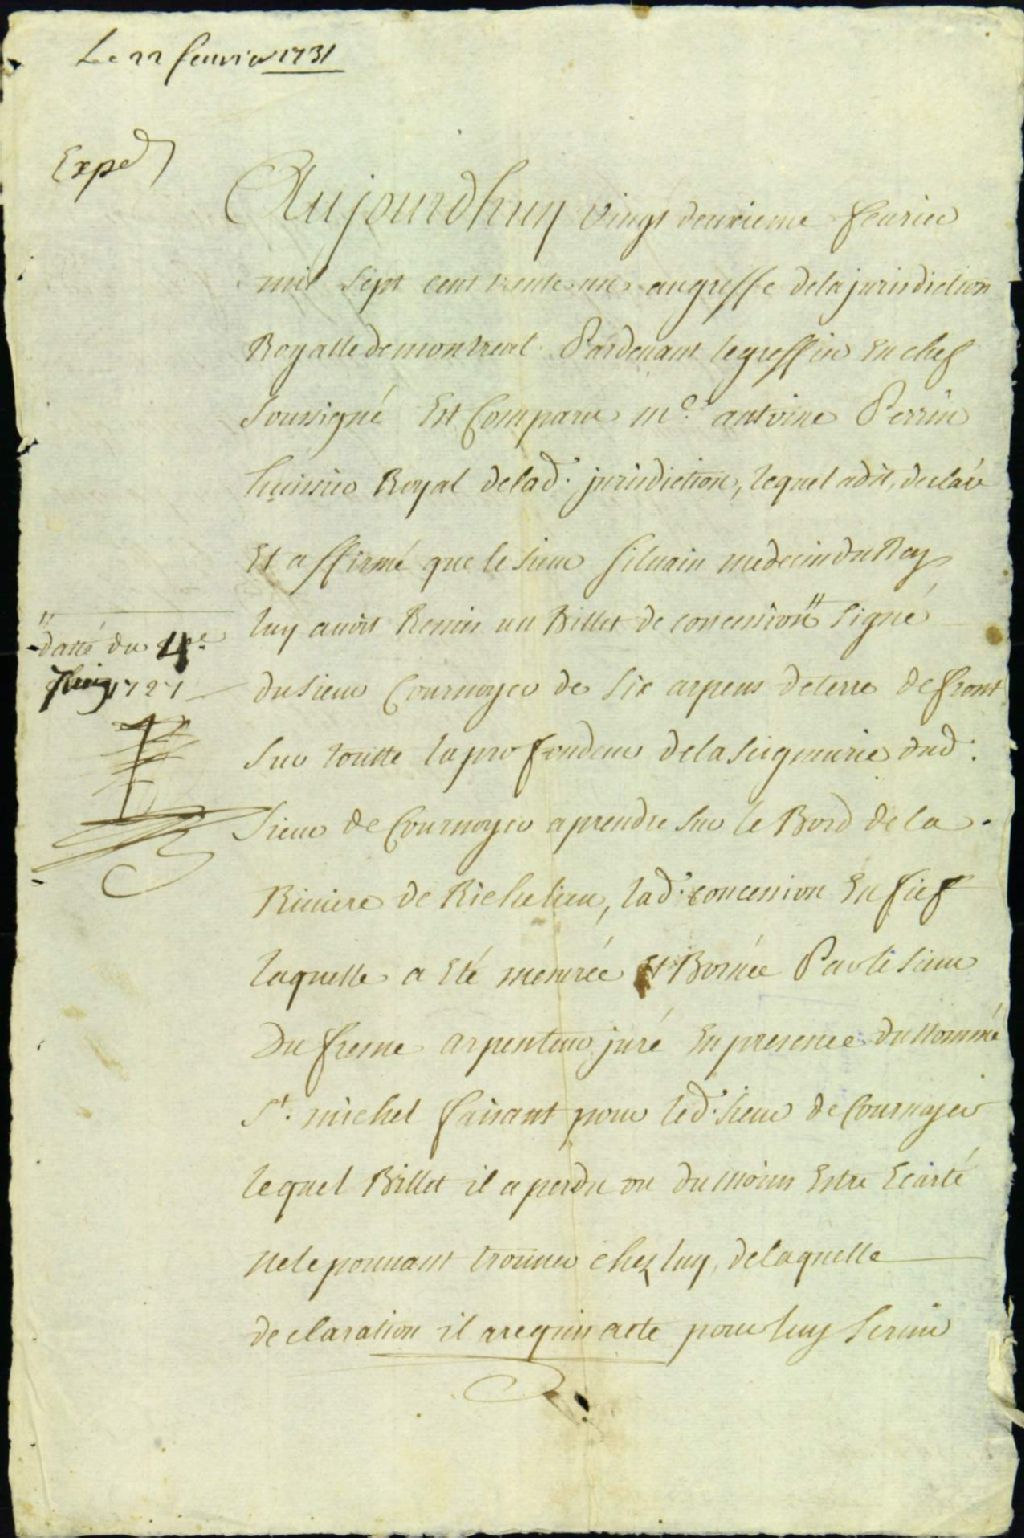 Le 22 feuvrier 1731
Exped
Aujourdhuy vingt deuxieme feurier
mil sept cent trente un au greffe de la jurisdiction
Royalle de montreal Pardeuant le greffier En chef
soussigné Est Comparu me. antoine Perrin
huissier Royal de lad. jurisdiction, lequel a dit, declaré
Et affirmé que le sieur siluain medecin du Roy
luy auoit Remis un Billet de concession " signé
" datté du 4e.
1727
du sieur Cournoyer de six arpens de terre de front
sur toutte la profondeur de la seigneurie dud.
sieur de Cournoyer a prendre sur le Bord de la
Riuiere de Richelieu, lad. concession En fief
laquelle a Eté mesurée Et Bornée Par le sieur
Dufresne arpenteur juré En presence du nommé
St. michel faisant pour led. sieur de Cournoyer
lequel Billet il a perdu ou du moins Estre Ecarté
ne le pouuant trouuer chez luy, de laquelle
declaration il a requis acte pour luy seruir